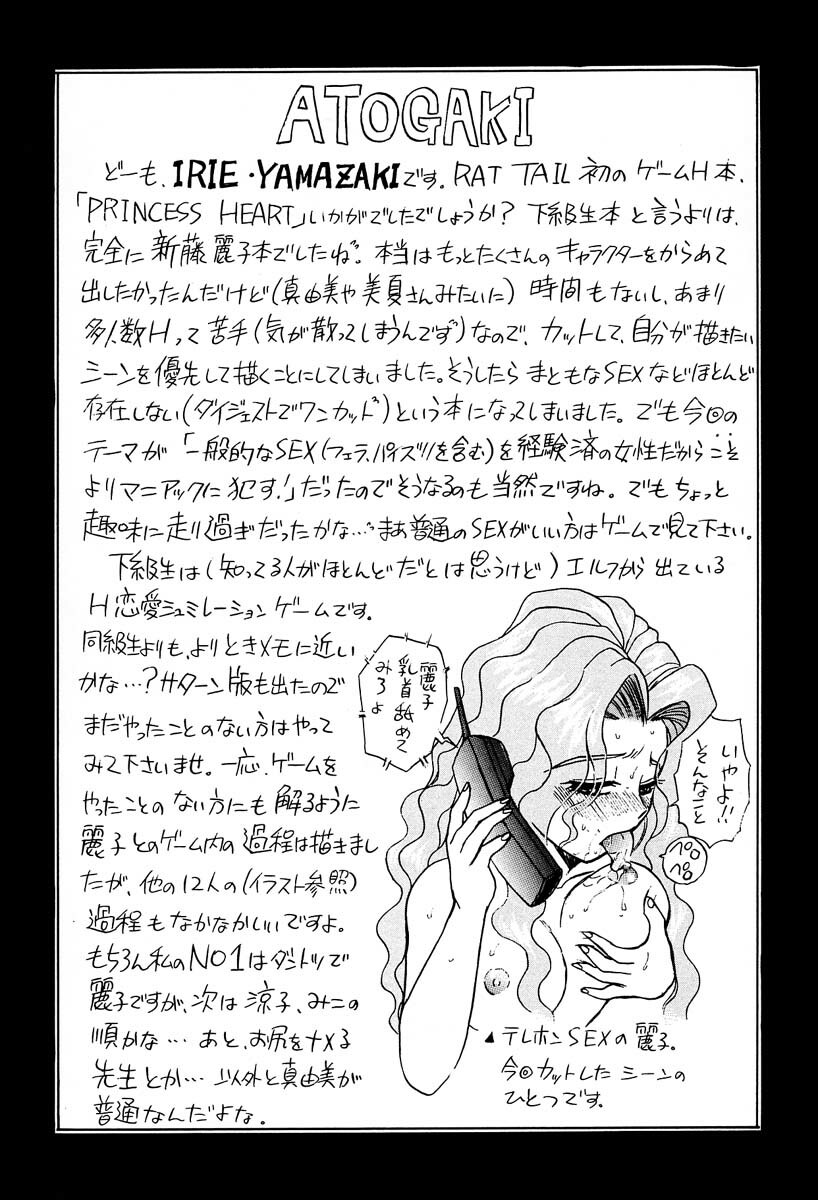 ATOGAKI
どーも、IRIE・YAMAZAKIです。RAT TAIL 初のゲームH本、
「PRINCESS HEART」いかがでしたでしょうか? 下級生本と言うよりは、
完全に新藤麗子本でしたね。本当はもっとたくさんのキャラクターをからめて
出したかったんだけど(真由美や美夏さんみたいに)時間もないし、あまり
多人数Hって苦手(気が散ってしまうんです)なので、カットして、自分が描きたい
シーンを優先して描くことにしてしまいました。そうしたらまともなSEXなどほとんど
存在しない(ダイジェストでワンカット)という本になってしまいました。でも今回の
テーマが「一般的なSEX(フェラ、パイズリを含む)を経験済の女性だからこそ
よりマニアックに犯す!」だったのでそうなるのも当然ですね。でもちょっと
趣味に走り過ぎだったかな…。まあ普通のSEXがいい方はゲームで見て下さい。
下級生は(知ってる人がほとんどだとは思うけど)エルフから出ている
H恋愛シュミレーションゲームです。
同級生よりも、よりときメモに近い
かな…?サターン版も出たので
まだやったことのない方はやって
みて下さいませ。一応、ゲームを
やったことのない方にも解るように
麗子とのゲーム内の過程は描きまし
たが、他の12人の(イラスト参照)
過程もなかなかしいですよ。
もちろん私のNO1はダントツで
麗子ですが、次は涼子、みこの
順かな… あと、お尻をナメる
先生とか… 以外と真由美が
普通なんだよな。
麗子
乳首舐めて
みろよ
いやよ!!
そんなこと
ペロ
ペロ
▲テレホンSEXの麗子。
今回カットしたシーンの
ひとつです。